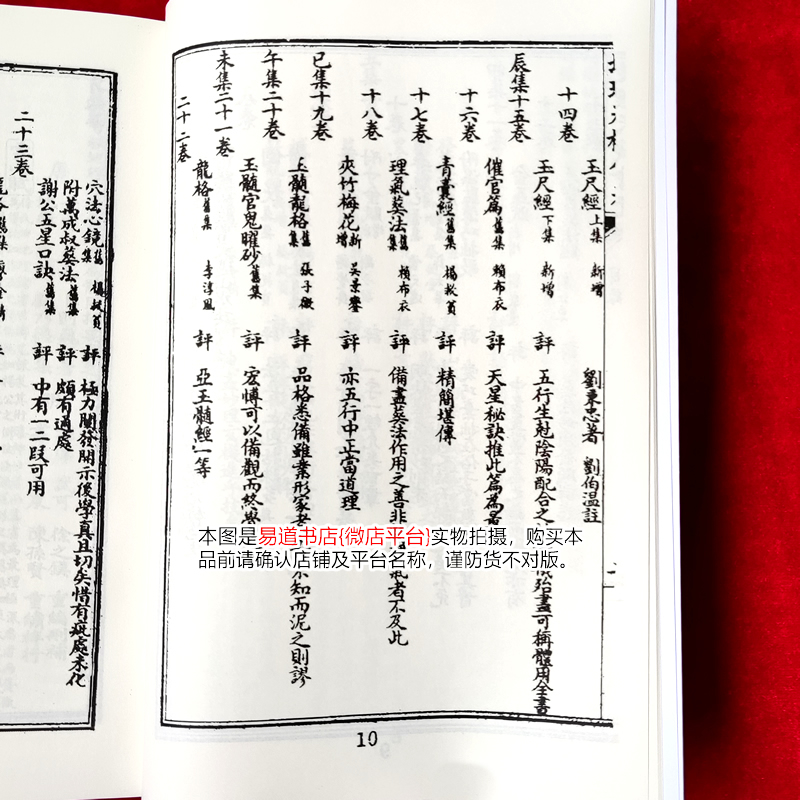 十四卷 玉尺經上集 新增 劉秉忠著 劉伯温註
辰集十五卷 玉尺經下集 新增 評 五行生尅陰陽配合之 殆盡可稱體用全書
十六卷 催官篇舊集 賴布衣 評 天星秘訣推此篇為最
十七卷 青囊經舊集 楊救貧 評 精簡堪傳
十八卷 理氣葬法舊集 賴布衣 評 備盡葬法作用之善非 氣者不及此
巳集十九卷 夾竹梅花新增 吳景鸞 評 亦五行中正當道理
午集二十卷 玉髓龍格舊集 張子微 評 品格悉備雖業形家者 不知而泥之則謬
未集二十一卷 玉髓官鬼曜砂舊集 評 宏博可以備觀而終
二十二卷 龍格舊集 李淳風 評 亞玉髓經一等
穴法心鏡舊集 楊救貧 評 極力闡發開示後學真且切矣惜有疵處未化
附萬成叔葬法舊集 評 頗有過處
謝公五星口訣舊集 評 中有一二段可用
二十三卷
10
本图是易道书店{微店平台}实物拍摄，购买本
品前请确认店铺及平台名称，谨防货不对版。